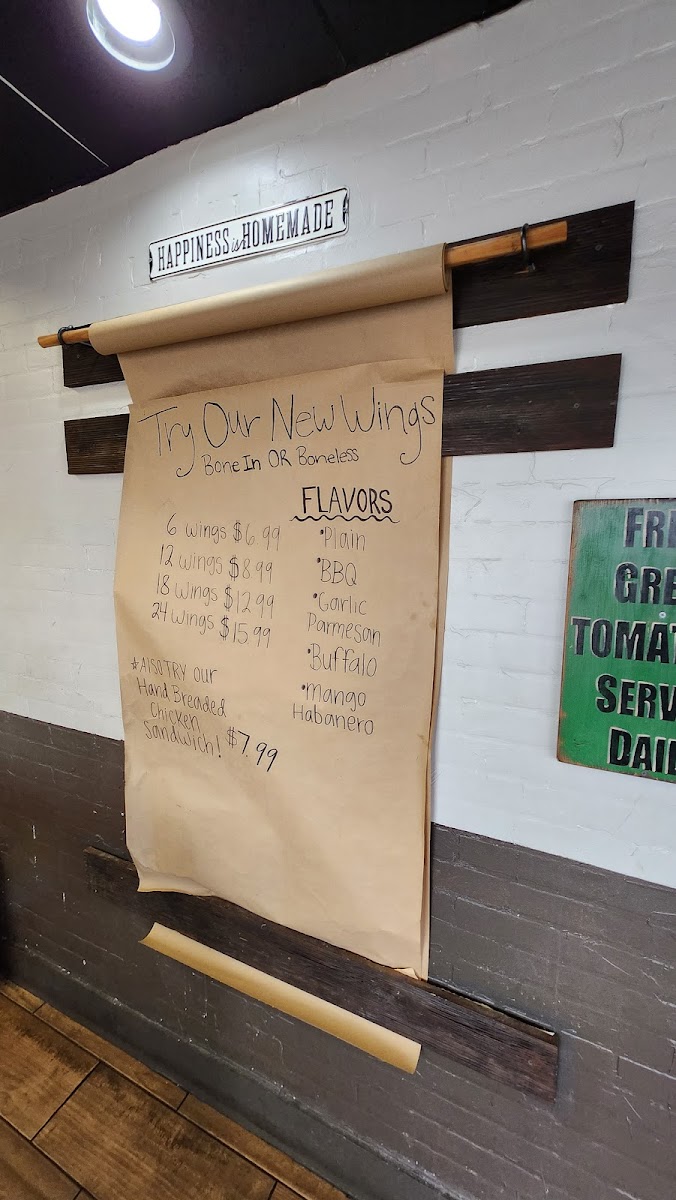 HAPPINESS is HOMEMADE
Try Our New Wings
Bone In OR Boneless
FLAVORS
6 wings $6.99
12 wings $8.99
18 wings $12.99
24 wings $15.99
•Plain
•BBQ
•Garlic
Parmesan
•Buffalo
•mango
Habanero
*ALSO TRY our
Hand Breaded
Chicken
Sandwich! $7.99
TOMAT
SERV
DAI
FR
GRE